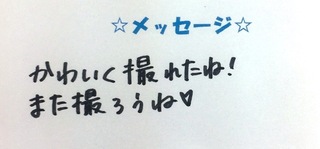 ☆メッセージ☆
かわいく撮れたね!
また撮ろうね♡